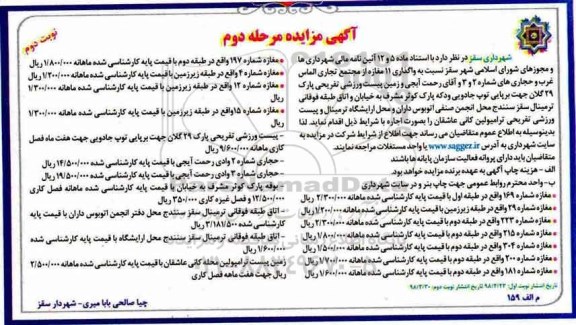 آگهی مزایده مرحله دوم
نوبت دوم
شهرداری سقز در نظر دارد با استناد ماده ۵ و ۱۲ آئین نامه مالی شهرداری ها
و مجوزهای شورای اسلامی شهر سقز نسبت به واگذاری ۱۱ مغازه از مجتمع تجاری الماس
غرب و حجاری های شماره ۲ و ۳ و آقای رحمت آیجی و زمین پیست ورزشی تفریحی پارک
۲۹ گلان جهت برپایی توپ جادویی ودکه پارک کوثر مشرف به خیابان و اتاق طبقه فوقانی
ترمینال سقز سنندج محل انجمن صنفی اتوبوس داران و محل آرایشگاه ترمینال و پیست
ورزشی تفریحی ترامپولین کانی عاشقان را بصورت اجاره با شرایط ذیل اقدام نماید. لذا
بدینوسیله به اطلاع عموم متقاضیان می رساند جهت اطلاع از شرایط شرکت در مزایده به
سایت شهرداری به آدرس www.saggez.ir یا واحد مستغلات مراجعه نمایند.
متقاضیان باید دارای پروانه فعالیت سازمان پایانه ها باشند.
الف - هزینه چاپ آگهی به عهده برنده مزایده خواهد بود.
ب- واحد محترم روابط عمومی جهت چاپ بنر و در سایت شهرداری
مغازه شماره ۱۶۹ واقع در طبقه اول با قیمت پایه کارشناسی شده ماهانه ۲/۳۰۰/۰۰۰ ریال
مغازه شماره ۲۹ واقع در طبقه زیرزمین با قیمت پایه کارشناسی شده ماهانه ۱/۲۰۰/۰۰۰ ریال
مغازه شماره ۲۲۳ واقع در طبقه دوم با قیمت پایه کارشناسی شده ماهانه ۲/۰۰۰/۰۰۰ ریال
مغازه شماره ۲۱۵ واقع در طبقه دوم با قیمت پایه کارشناسی شده ماهانه ۱/۷۰۰/۰۰۰ ریال
مغازه شماره ۲۰۴ واقع در طبقه دوم با قیمت پایه کارشناسی شده ماهانه ۱/۵۰۰/۰۰۰ ریال
مغازه شماره ۲۰۰ واقع در طبقه دوم با قیمت پایه کارشناسی شده ماهانه ۱/۷۰۰/۰۰۰ ریال
مغازه شماره ۱۸۱ واقع در طبقه دوم با قیمت پایه کارشناسی شده ماهانه ۱/۶۰۰/۰۰۰ ریال
تاریخ انتشار نوبت اول: ۹۸/۴/۲۳ تاریخ انتشار نوبت دوم: ۹۸/۴/۳۰
م الف ۱۵۹
مغازه شماره ۱۹۷ واقع در طبقه دوم با قیمت پایه کارشناسی شده ماهانه ۱/۸۰۰/۰۰۰ ریال
مغازه شماره ۴ واقع در طبقه زیرزمین با قیمت پایه کارشناسی شده ماهانه ۱/۲۰۰/۰۰۰ ریال
مغازه شماره ۱۲ واقع در طبقه زیرزمین با قیمت پایه کارشناسی شده ماهانه ۱/۳۰۰/۰۰۰
ریال
مغازه شماره ۱۵ واقع در طبقه زیرزمین با قیمت پایه کارشناسی شده ماهانه ۱/۳۰۰/۰۰۰
ریال
- پیست ورزشی تفریحی پارک ۲۹ گلان جهت برپایی توپ جادویی جهت هفت ماه فصل
کاری ماهانه ۹/۶۰۰/۰۰۰ ریال
- حجاری شماره ۲ وادی رحمت آیجی با قیمت پایه کارشناسی شده ۱۴/۵۰۰/۰۰۰ ریال
- حجاری شماره ۳ وادی رحمت آیجی با قیمت پایه کارشناسی شده ۱۹/۵۰۰/۰۰۰ ریال
- بوفه پارک کوثر مشرف به خیابان با قیمت پایه کارشناسی شده ماهانه فصل کاری
۱۲/۵۰۰/۰۰۰ و فصل غیره کاری ۳۵۰/۰۰۰ ریال
- اتاق طبقه فوقانی ترمینال سقز سنندج محل دفتر انجمن اتوبوس داران با قیمت پایه
کارشناسی شده ۳/۱۸۱/۵۰۰ ریال
- اتاق طبقه فوقانی ترمینال سقز سنندج محل آرایشگاه با قیمت پایه کارشناسی شده
۱/۶۰۰/۰۰۰ ریال
زمین پیست ترامپولین محله کانی عاشقان با قیمت پایه کارشناسی شده ماهانه ۲/۵۰۰/۰۰۰
ریال جهت هفت ماهه فصل کاری
چیا صالحی بابا میری- شهردار سقز